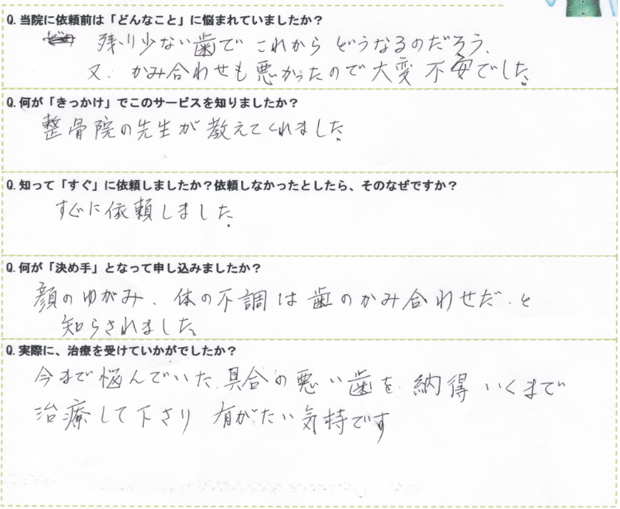 Q.当院に依頼前は「どんなこと」に悩まれていましたか？
残り少ない歯で これから どうなるのだろう、
又、かみ合わせも悪かったので大変 不安でした。
Q.何が「きっかけ」でこのサービスを知りましたか？
整骨院の先生が教えてくれました。
Q.知って「すぐ」に依頼しましたか？依頼しなかったとしたら、そのなぜですか？
すぐに依頼しました。
Q.何が「決め手」となって申し込みましたか？
顔のゆがみ、体の不調は歯のかみ合わせだ、と
知らされました。
Q.実際に、治療を受けていかがでしたか？
今まで悩んでいた、具合の悪い歯を 納得いくまで
治療して下さり 有がたい気持です